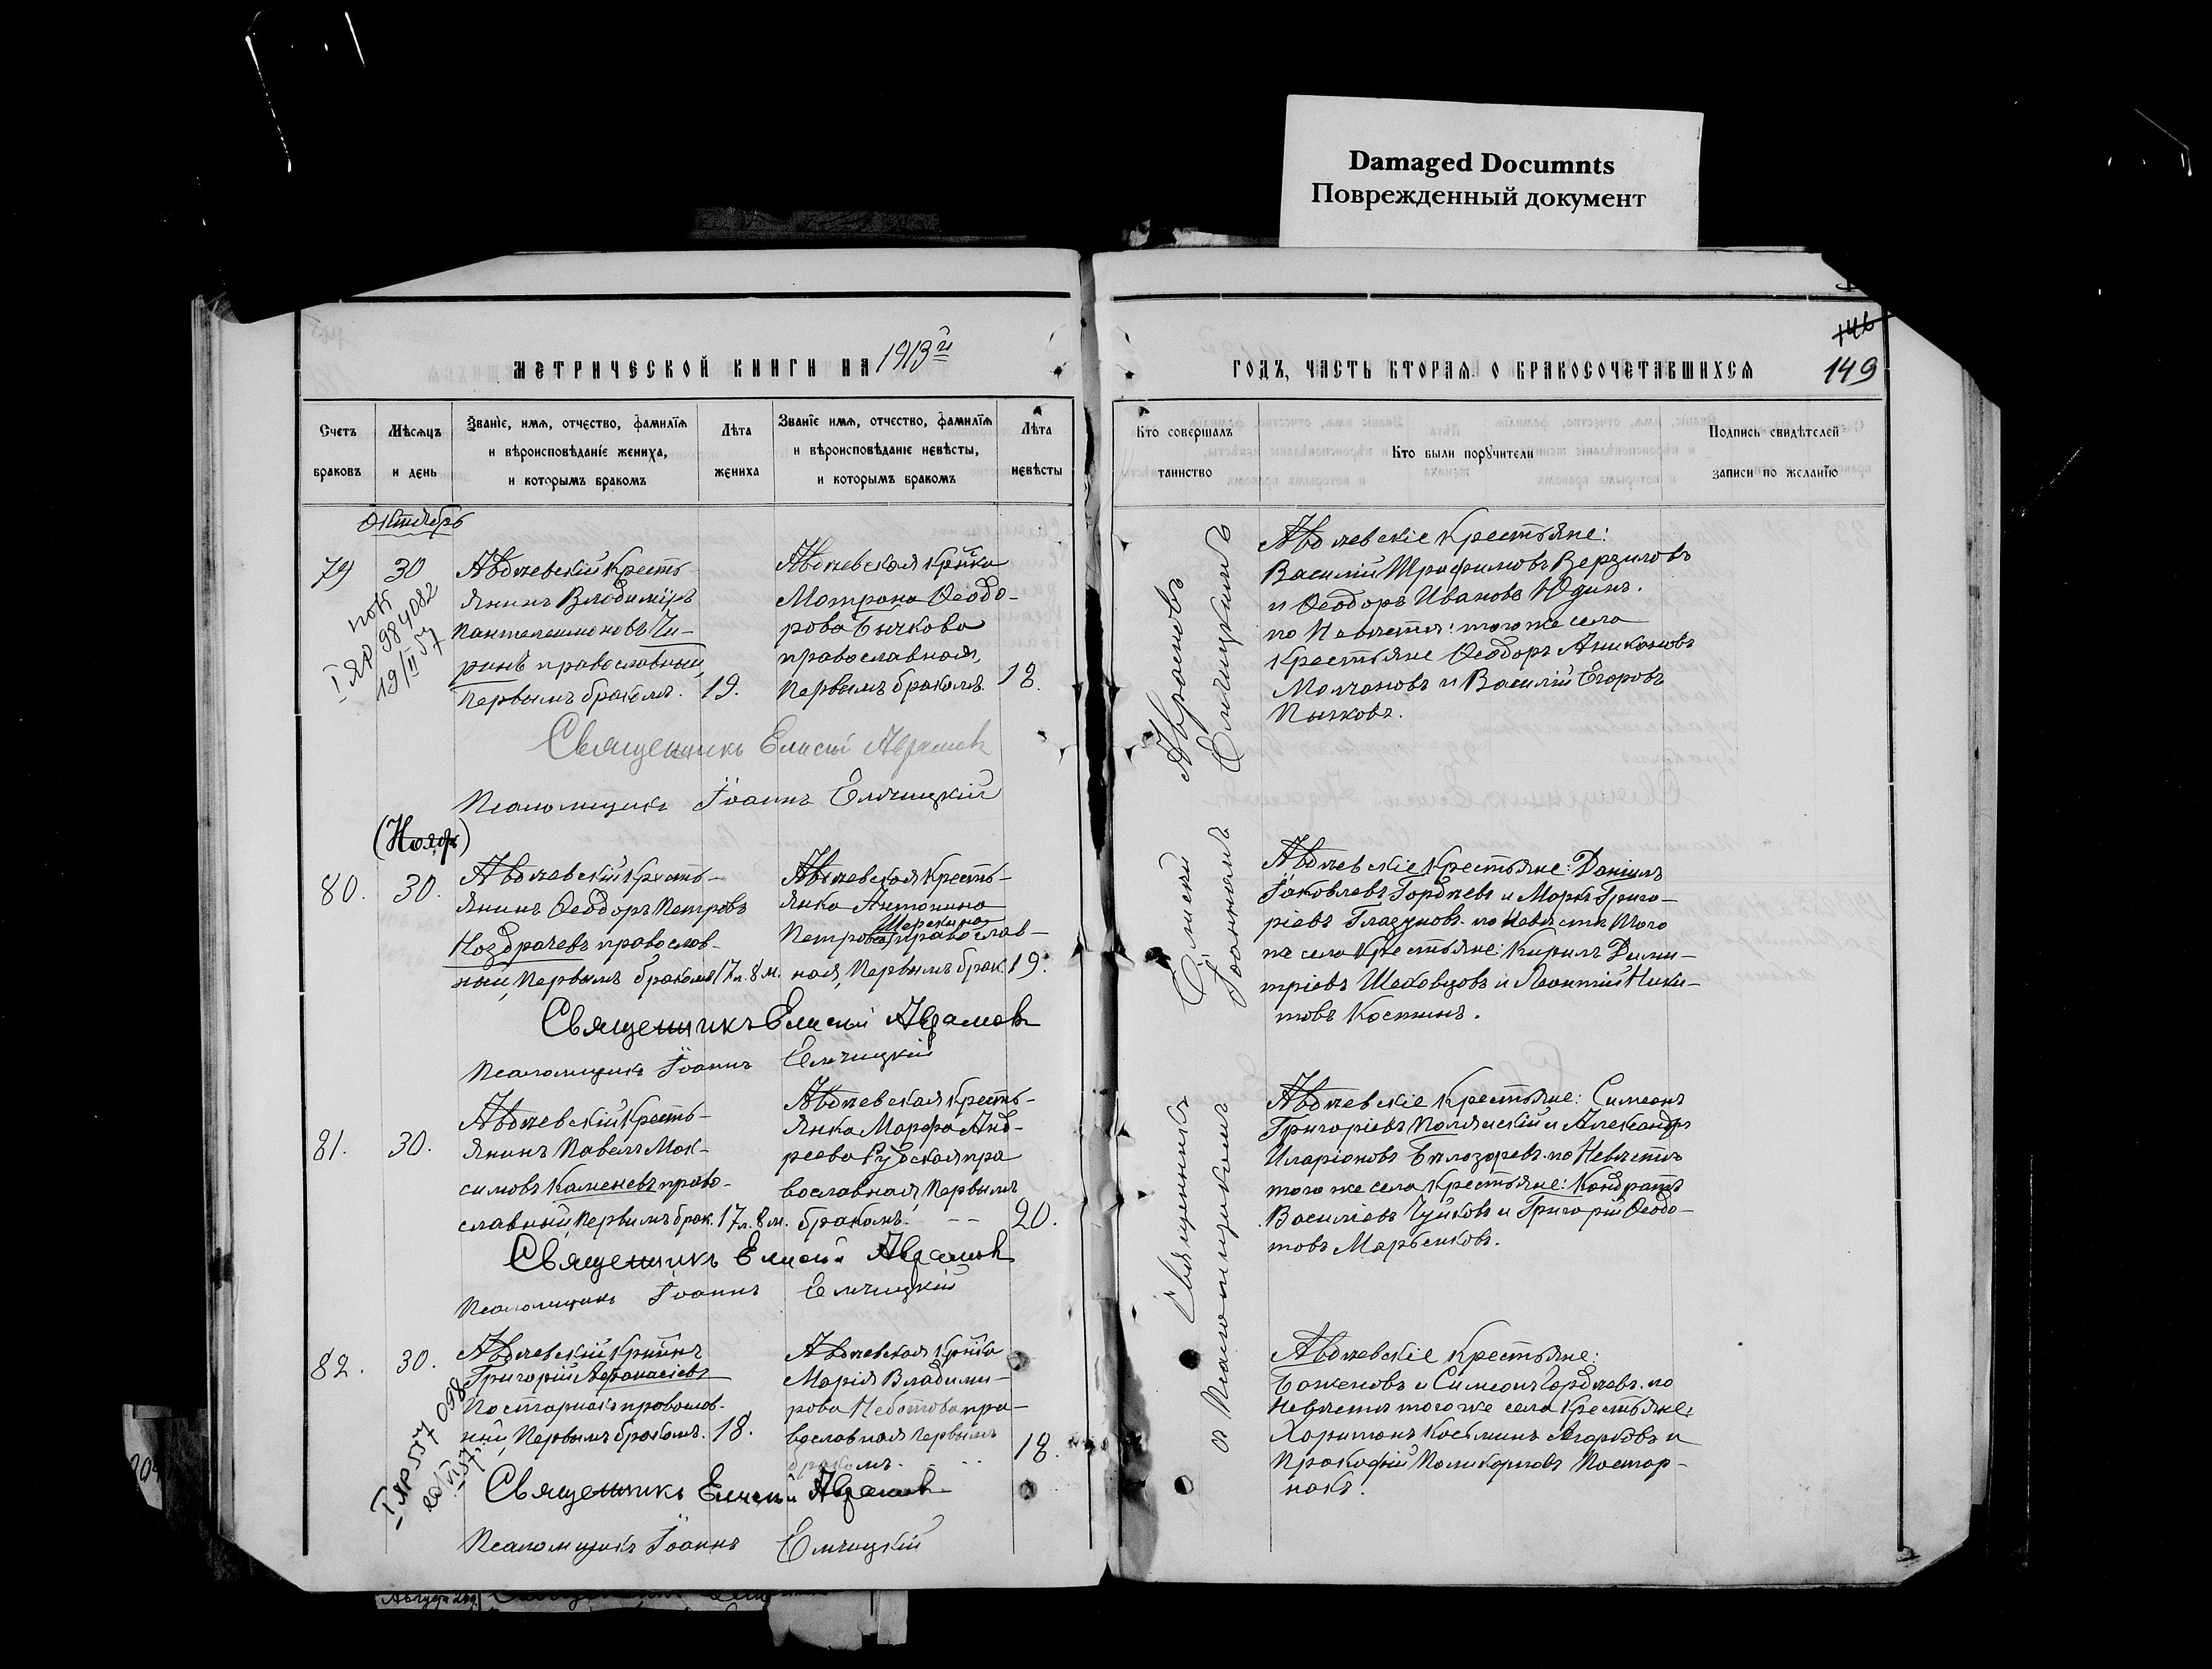 Damaged Documnts
Поврежденный документ
МЕТРИЧЕСКОЙ КНИГИ НА 1913й
Счетъ браковъ
Мѣсяцъ и день
Званіе, имя, отчество, фамилія и вѣроисповѣданіе жениха, и которымъ бракомъ
Лѣта жениха
Званіе имя, отчество, фамилія и вѣроисповѣданіе невѣсты, и которымъ бракомъ
Лѣта невѣсты
Октябрь
79
30
Авдѣевскій Кресть-
янинъ Владиміръ
Пантелеимоновъ Чи-
ринъ православный,
первымъ бракомъ.
19.
Авдѣевская кр-нка
Матрона Ѳеодо-
рова Бычкова
православная,
первымъ бракомъ.
18.
I ЯР 984082
19/II 57
Священникъ Елисей Абрамовъ
Псаломщикъ Іоаннъ Ельчицкій
(Ноябрь)
80.
30.
Авдѣевскій кресть-
янинъ Ѳеодоръ Петровъ
Ноздрачевъ православ-
ный, Первымъ бракомъ
17 л. 8 м.
Авдѣевская кресть-
янка Антонина
Петрова Шерекина православ-
ная, первымъ брак.
19.
Священникъ Елисей Абрамовъ
Псаломщикъ Іоаннъ Ельчицкій
81.
30.
Авдѣевскій кресть-
янинъ Павелъ Мак-
симовъ Каменевъ право-
славный, первымъ брак.
17 л. 8 м.
Авдѣевская кресть-
янка Марфа Анд-
реева Рубская пра
вославная, первымъ
бракомъ.
20.
Священникъ Елисей Абрамовъ
Псаломщикъ Іоаннъ Ельчицкій
82.
30.
Авдѣевскій кр-нинъ
Григорій Аѳанасіевъ
Постарнакъ православ-
ный, Первымъ бракомъ.
18.
Авдѣевская кр-нка
Марія Владими-
рова Неботова пра-
вославная первымъ
бракомъ.
18.
I ЯР 557098
Священникъ Елисей Абрамовъ
Псаломщикъ Іоаннъ Ельчицкій
ГОДЪ, ЧАСТЬ ВТОРАЯ О БРАКОСОЧЕТАВШИХСЯ
146
149
Кто совершалъ таинство
Кто были поручители
Подпись свидѣтелей записи по желанію
Священникъ Елисей Абрамовъ
и Псаломщикомъ Іоанномъ Ельчицкимъ
Авдѣевскіе крестьяне:
Василій Трофимовъ Верзиловъ
и Ѳеодоръ Ивановъ Юдинъ.
по Невѣстѣ: того же села
крестьяне Ѳеодоръ Аникановъ
Молчановъ и Василій Егоровъ
Пычковъ.
Авдѣевскіе крестьяне: Даніилъ
Іаковлевъ Гордѣевъ и Маркъ Григо-
ріевъ Глазуновъ. по Невѣстѣ того
же села крестьяне: Кирилъ Дими-
тріевъ Шеховцовъ и Леонтій Ники-
товъ Костинъ.
Авдѣевскіе Крестьяне: Симеонъ
Григоріевъ Полянскій и Александръ
Иларіоновъ Бѣлозоревъ. по Невѣстѣ
того же села крестьяне: Кондратъ
Василіевъ Чуйковъ и Григорій Ѳеодо-
товъ Марьенковъ.
Авдѣевскіе крестьяне:
Баженовъ и Симеонъ Гордѣевъ. по
Невѣстѣ того же села крестьяне:
Харитонъ Косминъ Ягодковъ и
Прокофій Поликарповъ Постар-
накъ.